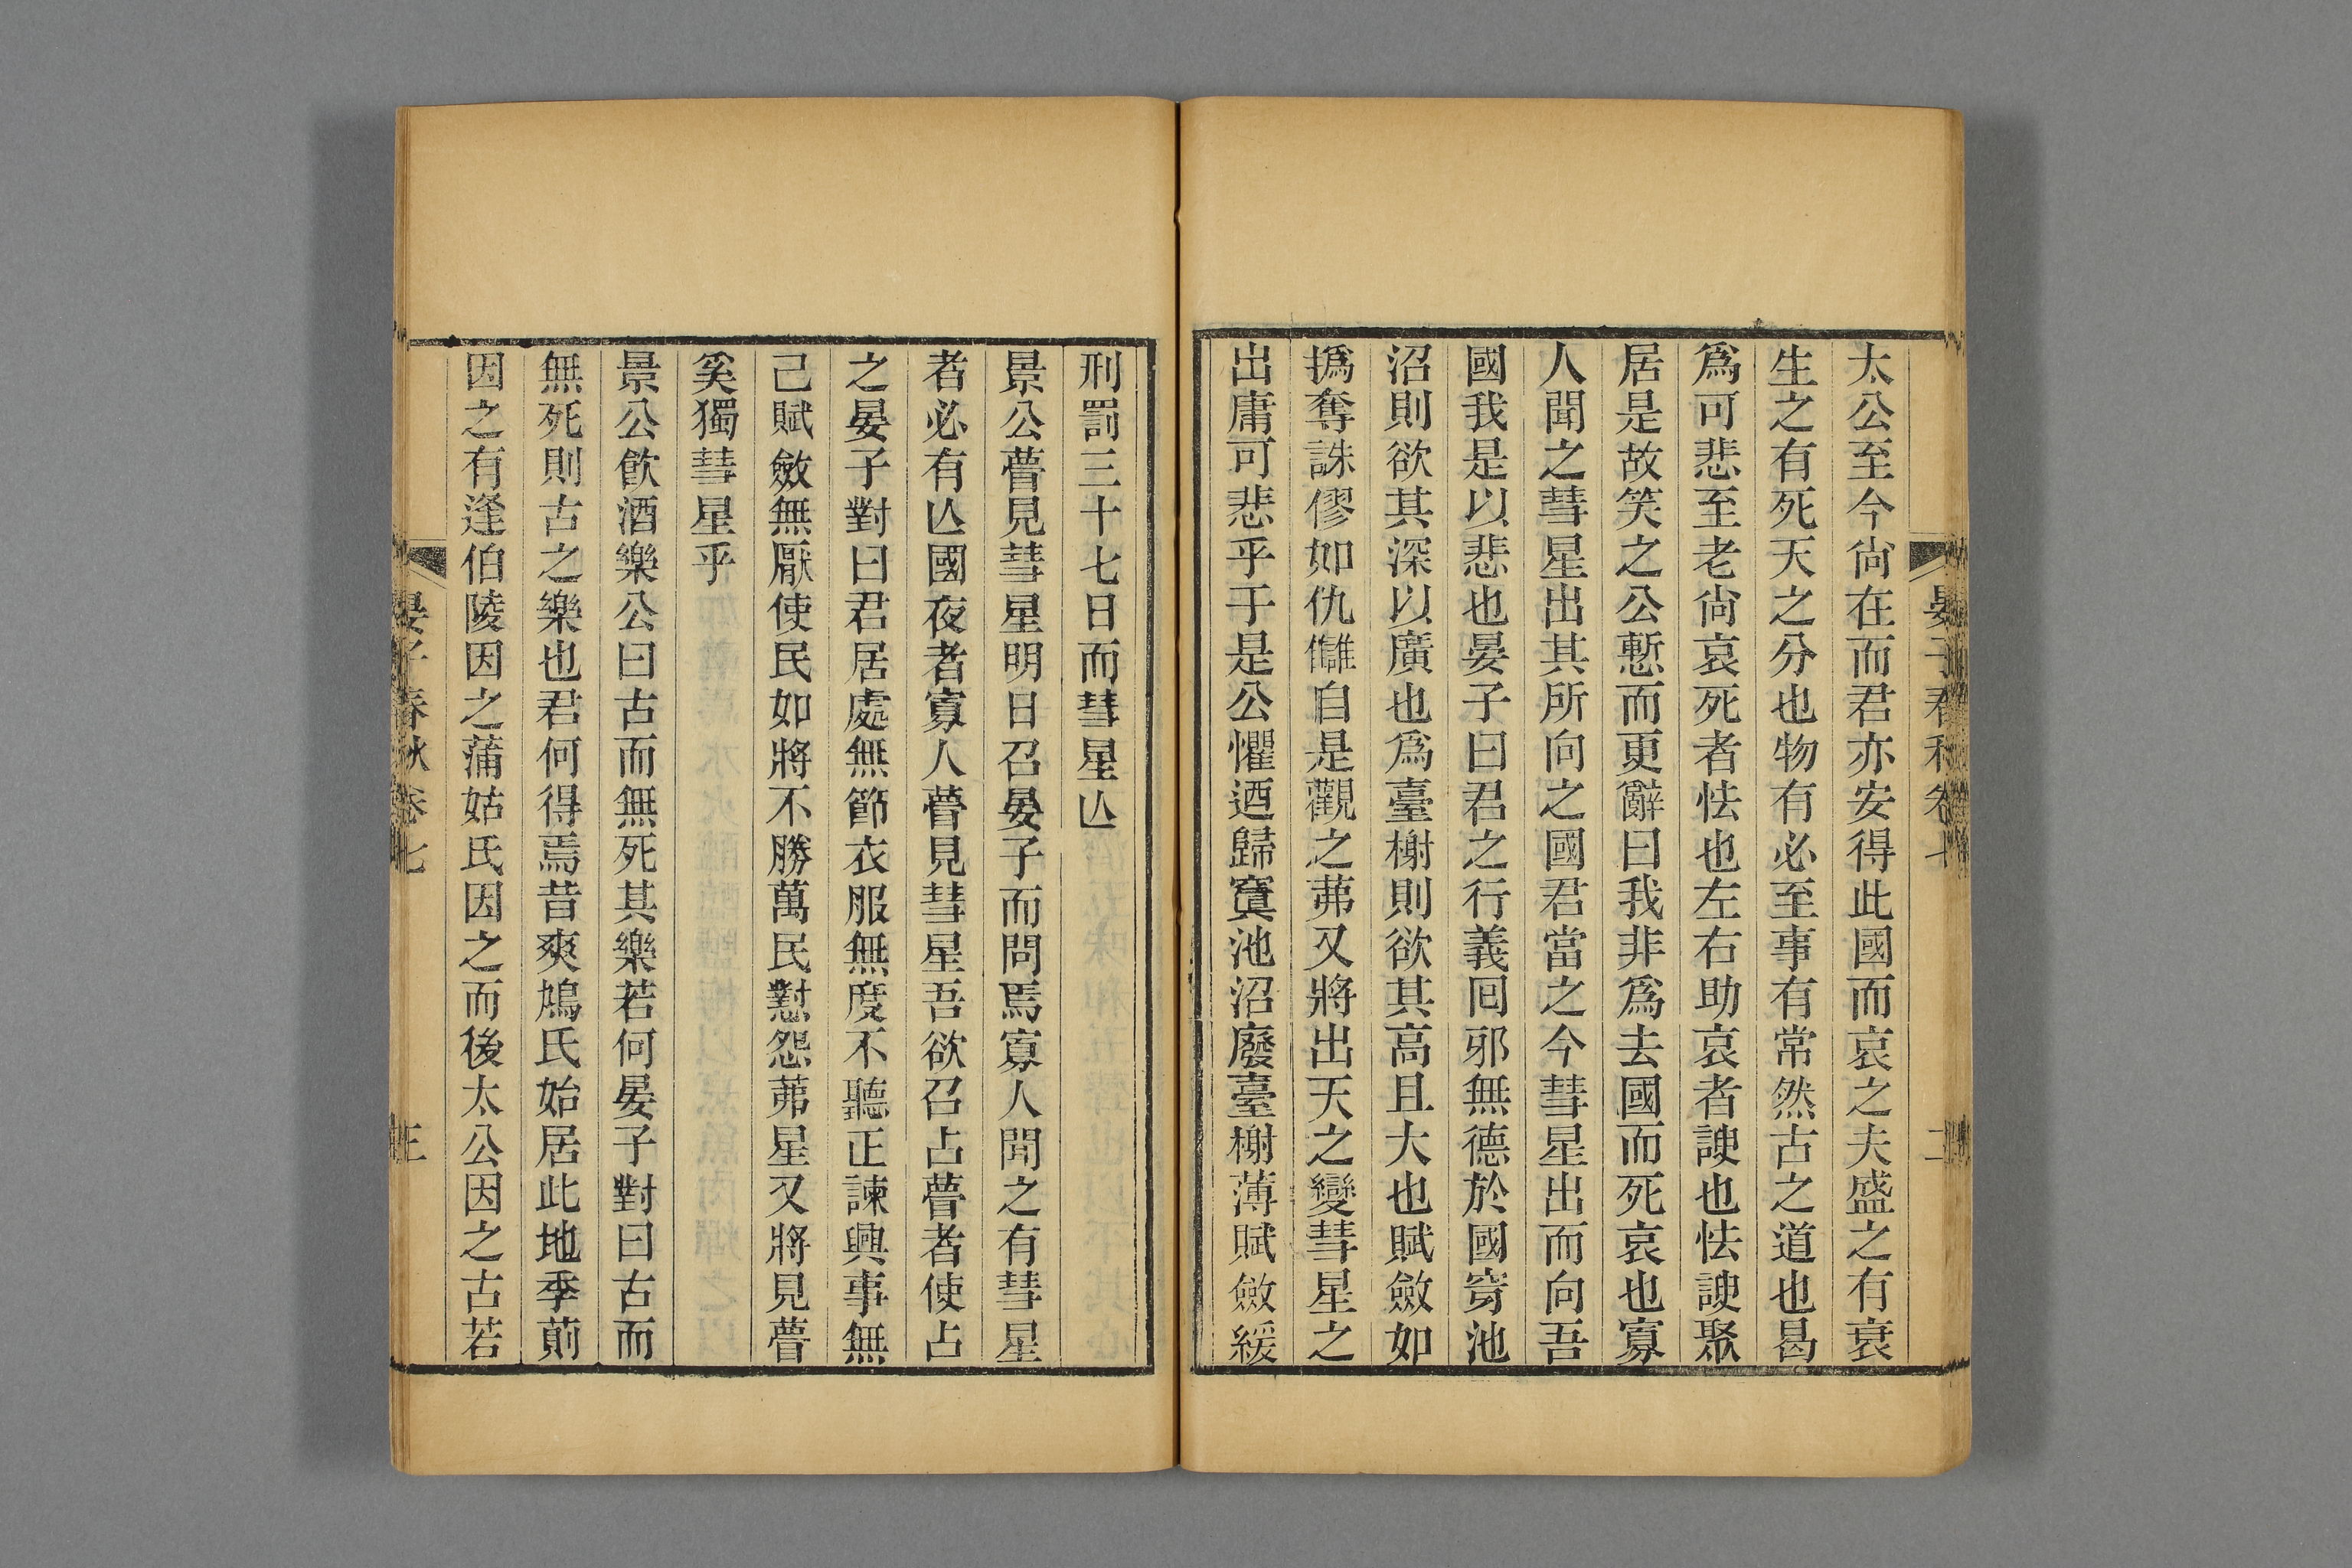 太公至今尙在而君亦安得此國而哀之夫盛之有衰
生之有死天之分也物有必至事有常然古之道也曷
爲可悲至老尙哀死者怯也左右助哀者諛也怯諛聚
居是故笑之公慙而更辭曰我非爲去國而死哀也寡
人聞之彗星出其所向之國君當之今彗星出而向吾
國我是以悲也晏子曰君之行義囘邪無德於國穿池
沼則欲其深以廣也爲臺榭則欲其高且大也賦斂如
撝奪誅僇如仇讎自是觀之茀又將出天之變彗星之
出庸可悲乎于是公懼迺歸窴池沼廢臺榭薄賦斂緩
刑罰三十七日而彗星亾
景公瞢見彗星明日召晏子而問焉寡人聞之有彗星
者必有亾國夜者寡人瞢見彗星吾欲召占瞢者使占
之晏子對曰君居處無節衣服無度不聽正諫興事無
已賦斂無厭使民如將不勝萬民懟怨茀星又將見瞢
奚獨彗星乎
景公飮酒樂公曰古而無死其樂若何晏子對曰古而
無死則古之樂也君何得焉昔爽鳩氏始居此地季萴
因之有逢伯陵因之蒲姑氏因之而後太公因之古若
晏子春秋卷七